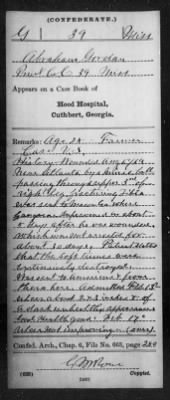 (CONFEDERATE.)
G 39 Miss
Abraham Gordan
Pvt. Co. C. 39 Miss
Appears on a Case Book of
Hood Hospital,
Cuthbert, Georgia.
Remarks: Age 24 Farmer
History Wounded Aug
Near Atlanta by minie ball
passing through upper 3rd of
right leg fracturing Tibia
was sent to Macon Ga where
Gangrene supervened in about
days after he was wounded
which was not arrested for
about 30 days. Patient states
that the soft tissues were
extensively destroyed.
from
there here. Admitted Feb 13th
ulcer about 2 x 3 inches & of
a dark unhealthy appearance
Genl Health good. Feb 17th
ulcer improving.
Confed. Arch., Chap. 6, File No. 665, page 224
(635)
Copyist.